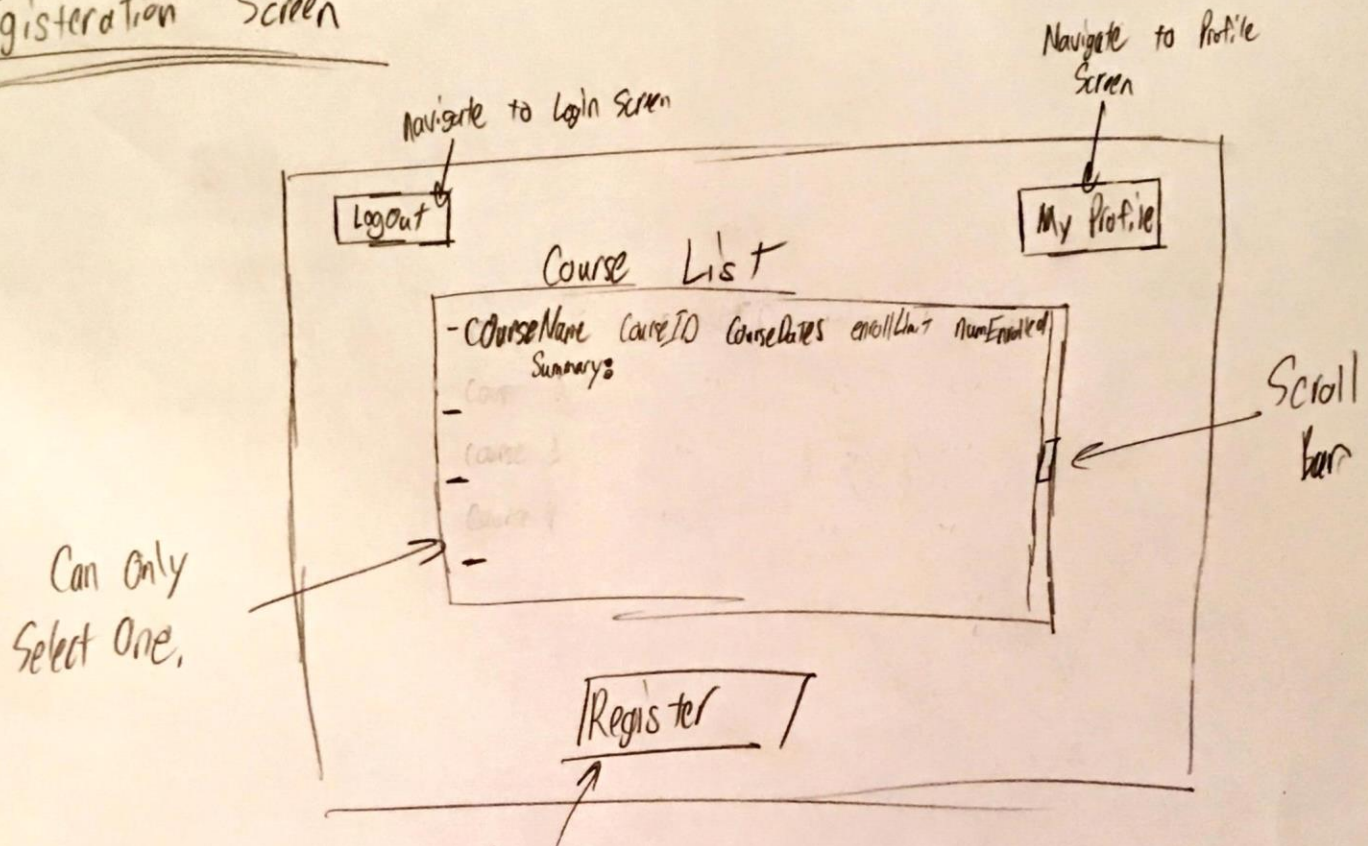 gisteration Screen
Navigate to Profile
Screen
Navigate to Login Screen
Logout
My Profile
Course List
- CourseName CourseID CourseDates enrollLimit numEnrolled
Summary:
Scroll
bar
Can Only
Select One.
Register